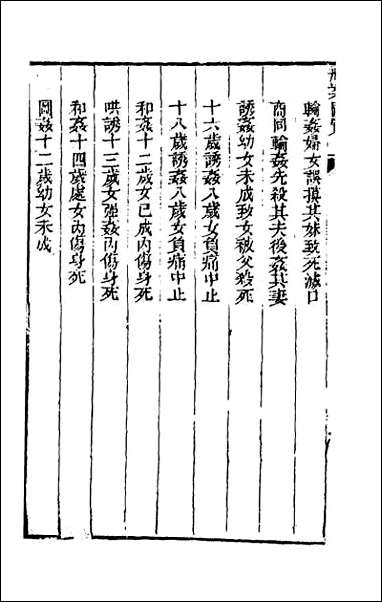 輪姦婦女誤摸其妹致死滅口
商同輪姦先殺其夫後姦其妻
誘姦幼女未成致女被父殺死
十六歲誘姦八歲女負痛中止
十八歲誘姦八歲女負痛中止
和姦十二歲女已成內傷身死
哄誘十三歲女強姦內傷身死
和姦十四歲處女內傷身死
圖姦十二歲幼女未成